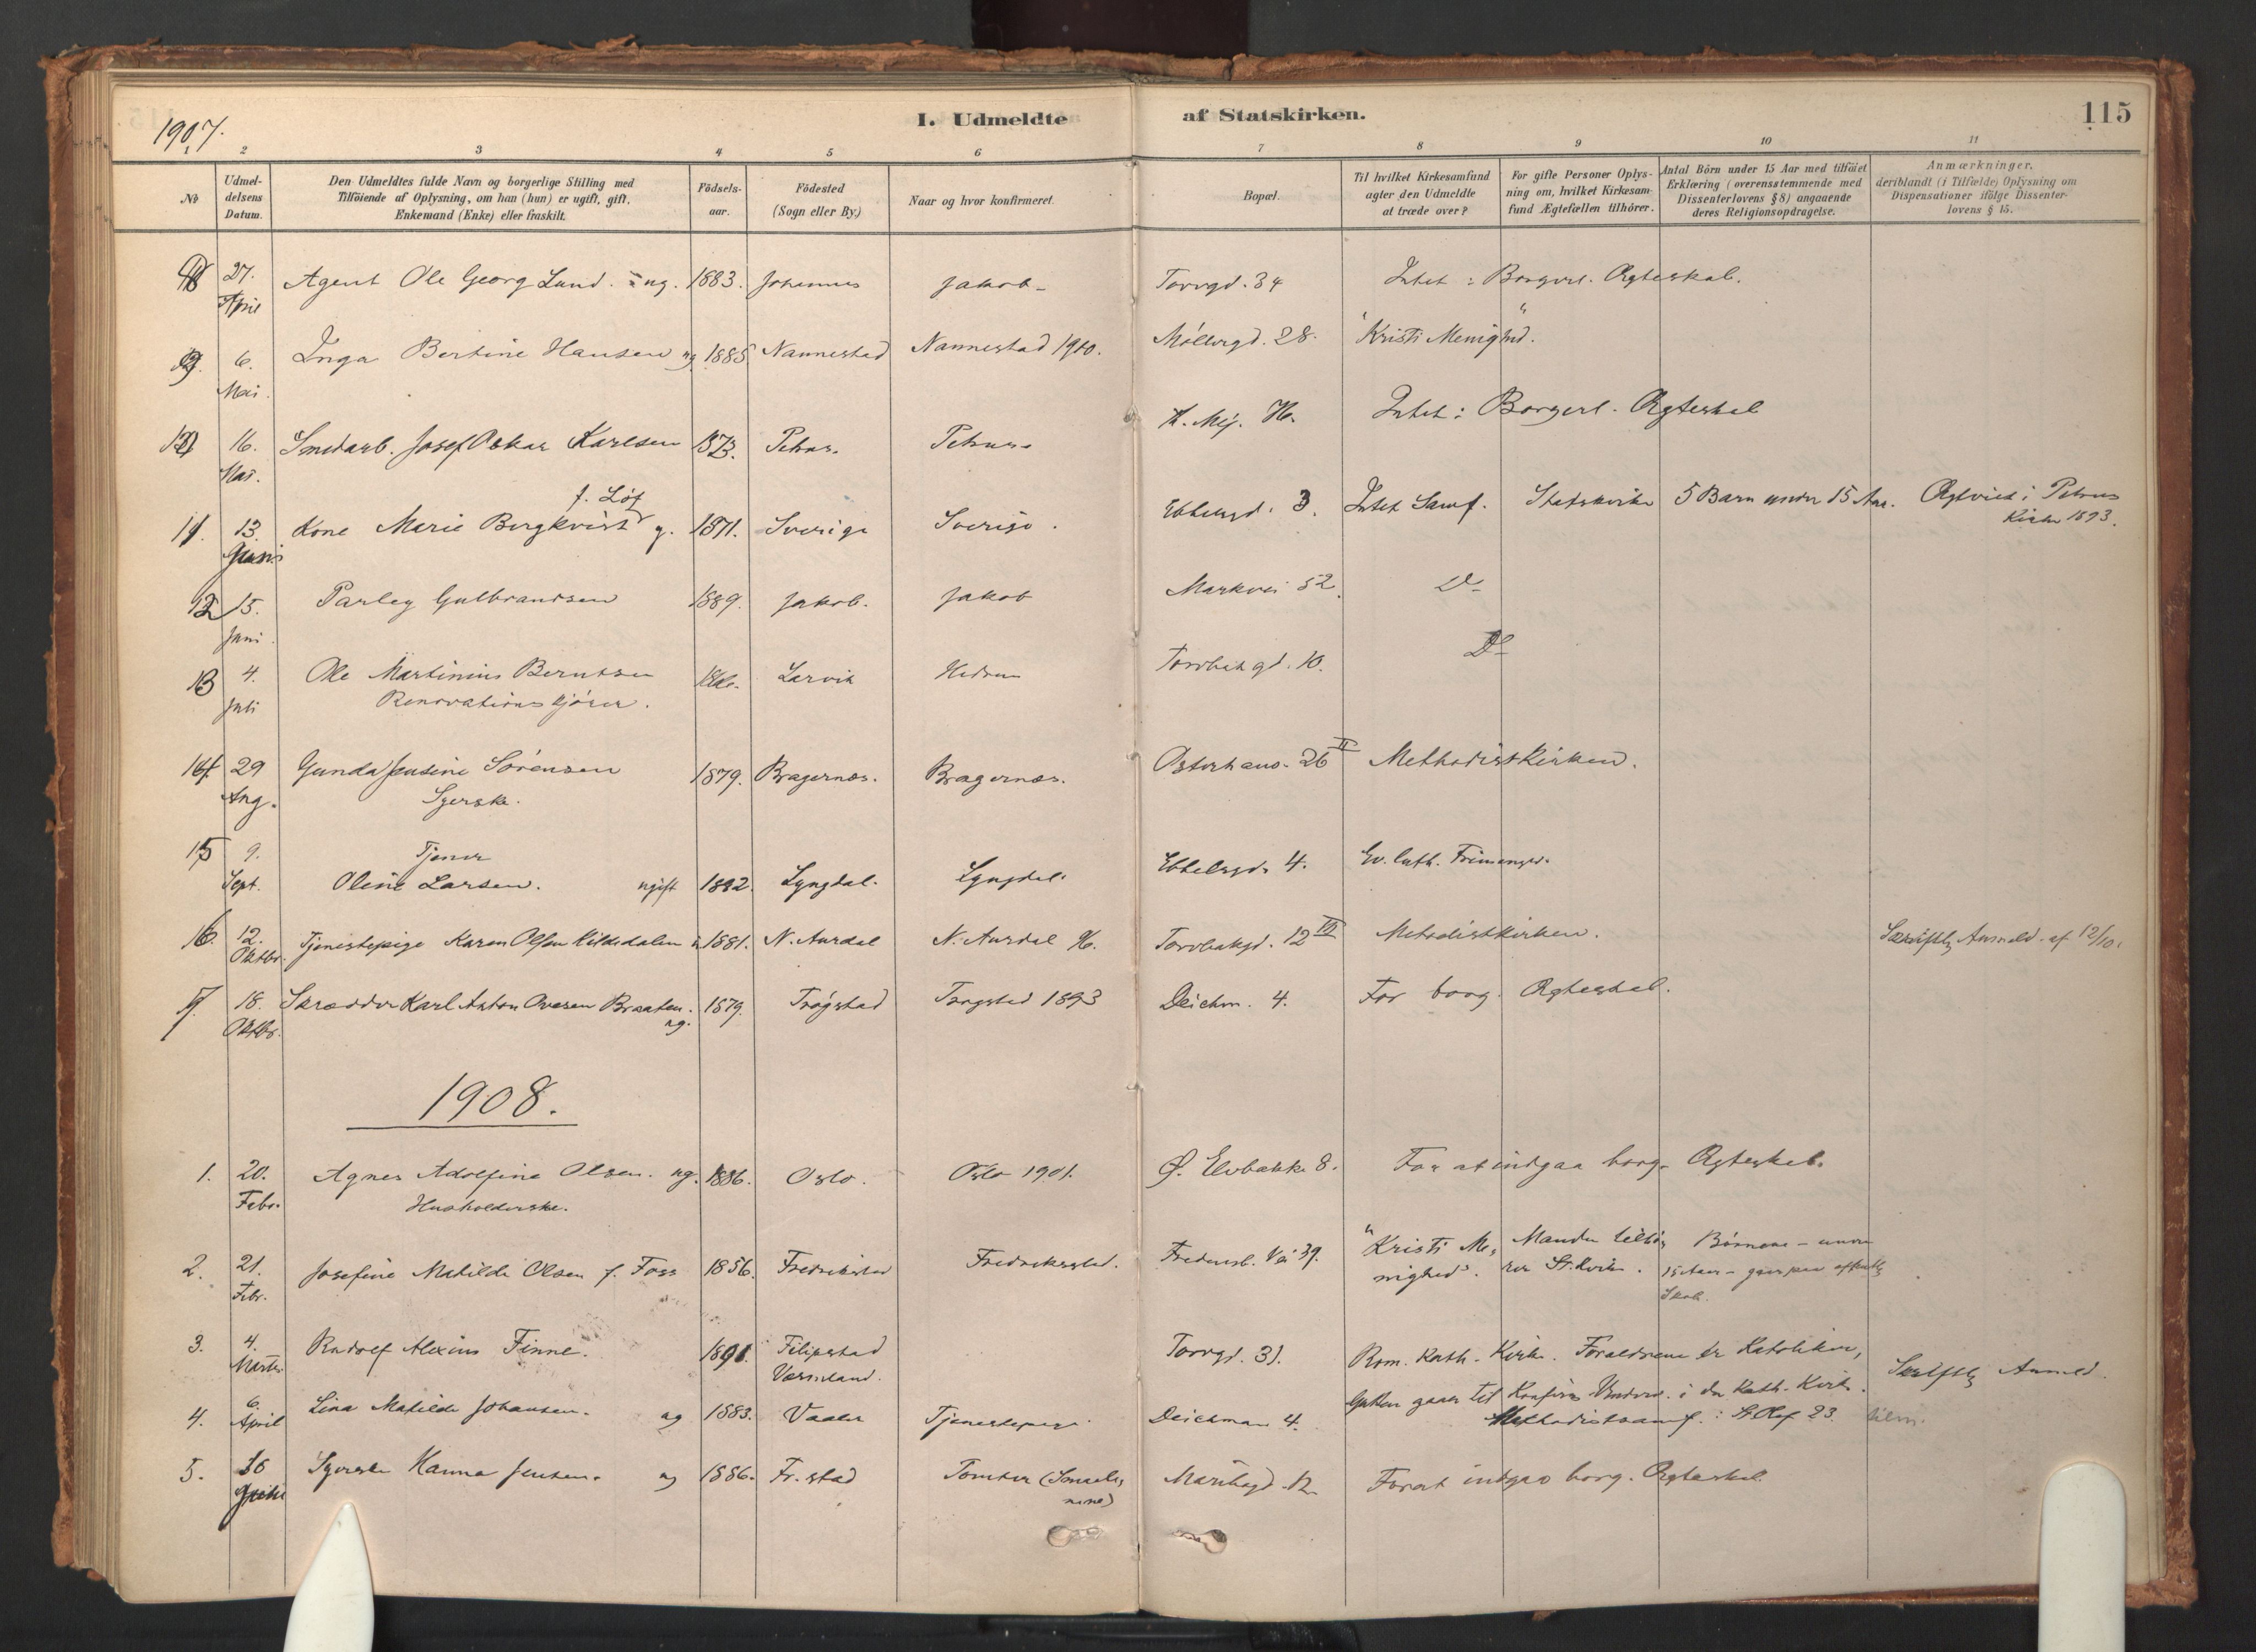 1907.
I. Udmeldte af Statskirken.
115
1 2 3 4 5 6 7 8 9 10 11
No
Udmeldelsens Datum.
Den Udmeldtes fulde Navn og borgerlige Stilling med
Tilföiende af Oplysning, om han (hun) er ugift, gift,
Enkemand (Enke) eller fraskilt.
Födselsaar.
Födested
(Sogn eller By.)
Naar og hvor konfirmeret.
Bopæl.
Til hvilket Kirkesamfund
agter den Udmeldte
at træde over?
For gifte Personer Oplys-
ning om, hvilket Kirkesam-
fund Ægtefællen tilhörer.
Antal Börn under 15 Aar med tilföiet
Erklæring (overensstemmende med
Dissenterlovens § 8) angaaende
deres Religionsopdragelse.
Anmærkninger,
deriblandt (i Tilfælde) Oplysning om
Dispensationer ifölge Dissenter-
lovens § 15.
8 27. April Agent Ole Georg Lund. ug. 1883. Johannes Jakob Torvgd. 34 Intet: Borgerl. Ægteskab.
9. 6. Mai. Inga Bertine Hansen ug 1885 Nannestad Nannestad 1900. Møllergd. 28. "Kristi Menighed".
16. Mai. Smedarb. Josef Oskar Karlsen 1873. Petrus Petrus Intet: Borgerl. Ægteskab
11. 13. Juni Kone Marie Bergkvist f. Löf g. 1871. Sverige Sverige. Ebbellsgd. 3. Intet Samf. Statskirke 5 Barn under 15 Aar. Ægtviet i Petrus
Kirke 1893.
12 15. Juni Parley Gulbrandsen 1889. Jakob. Jakob Markvei 52. Do
13 4. Juli Ole Martinius Berntsen Larvik Hedrum Torvbakgd. 10. Do
Renovationskjører.
14 29 Aug. Gunda Sørensen 1879. Bragernæs. Bragernæs. Osterhaus. 26 II Methodistkirken.
Syerske.
15 9. Sept. Tjener
Oline Larsen. ugift 1892. Lyngdal. Lyngdal. Ebbellsgd. 4. Ev. luth. Frimenigh.
16. 12. Oktbr. Tjenestepige Karen Olsen Kildedalen u. 1881. N. Aurdal N. Aurdal 96. Torvbakgd. 12 III Metodistkirken. Skriftlig Anmeld. af 12/10.
17. 18. Oktbr. Skrædder Karl Anton Ovesen Braaten. ug. 1879. Trøgstad Trøgstad 1893 Deichm. 4. For borg. Ægteskab.
1908.
1. 20. Febr. Agnes Adolfine Olsen. ug. 1886. Oslo. Oslo 1901. Ø. Elvbakke 8. For at indgaa borg. Ægteskab.
Husholderske.
2. 21. Febr. Josefine Matilde Olsen f. Foss 1856. Fredrikstad Fredriksstad. Fredensb. Vei 39. "Kristi Me- Manden tilhø- Børnene - under
nighed". rer St.kirken. 15 Aar - gaar paa offentlig
Skole.
3. 4. Marts. Rudolf Alexius Finne. 1891. Filipstad Torvgd. 31. Rom. Kath. Kirke. Forældrene er Katoliker,
Värmland. Gutten gaar til Konfirm. Underv. i den Kath. Kirke. Skriftlig Anmeld.
4. 6. April Lina Matilde Johansen. ug 1883. Vaaler Tjenestepige Deichman 4. Methodistsamf.: St. Olaf 23.
5. 16 Juni Syerske Hanna Jensen. ug 1886. Fr.stad Tomter (Smaale-
nene) Maribogd. 12 For at indgaa borg. Ægteskab.